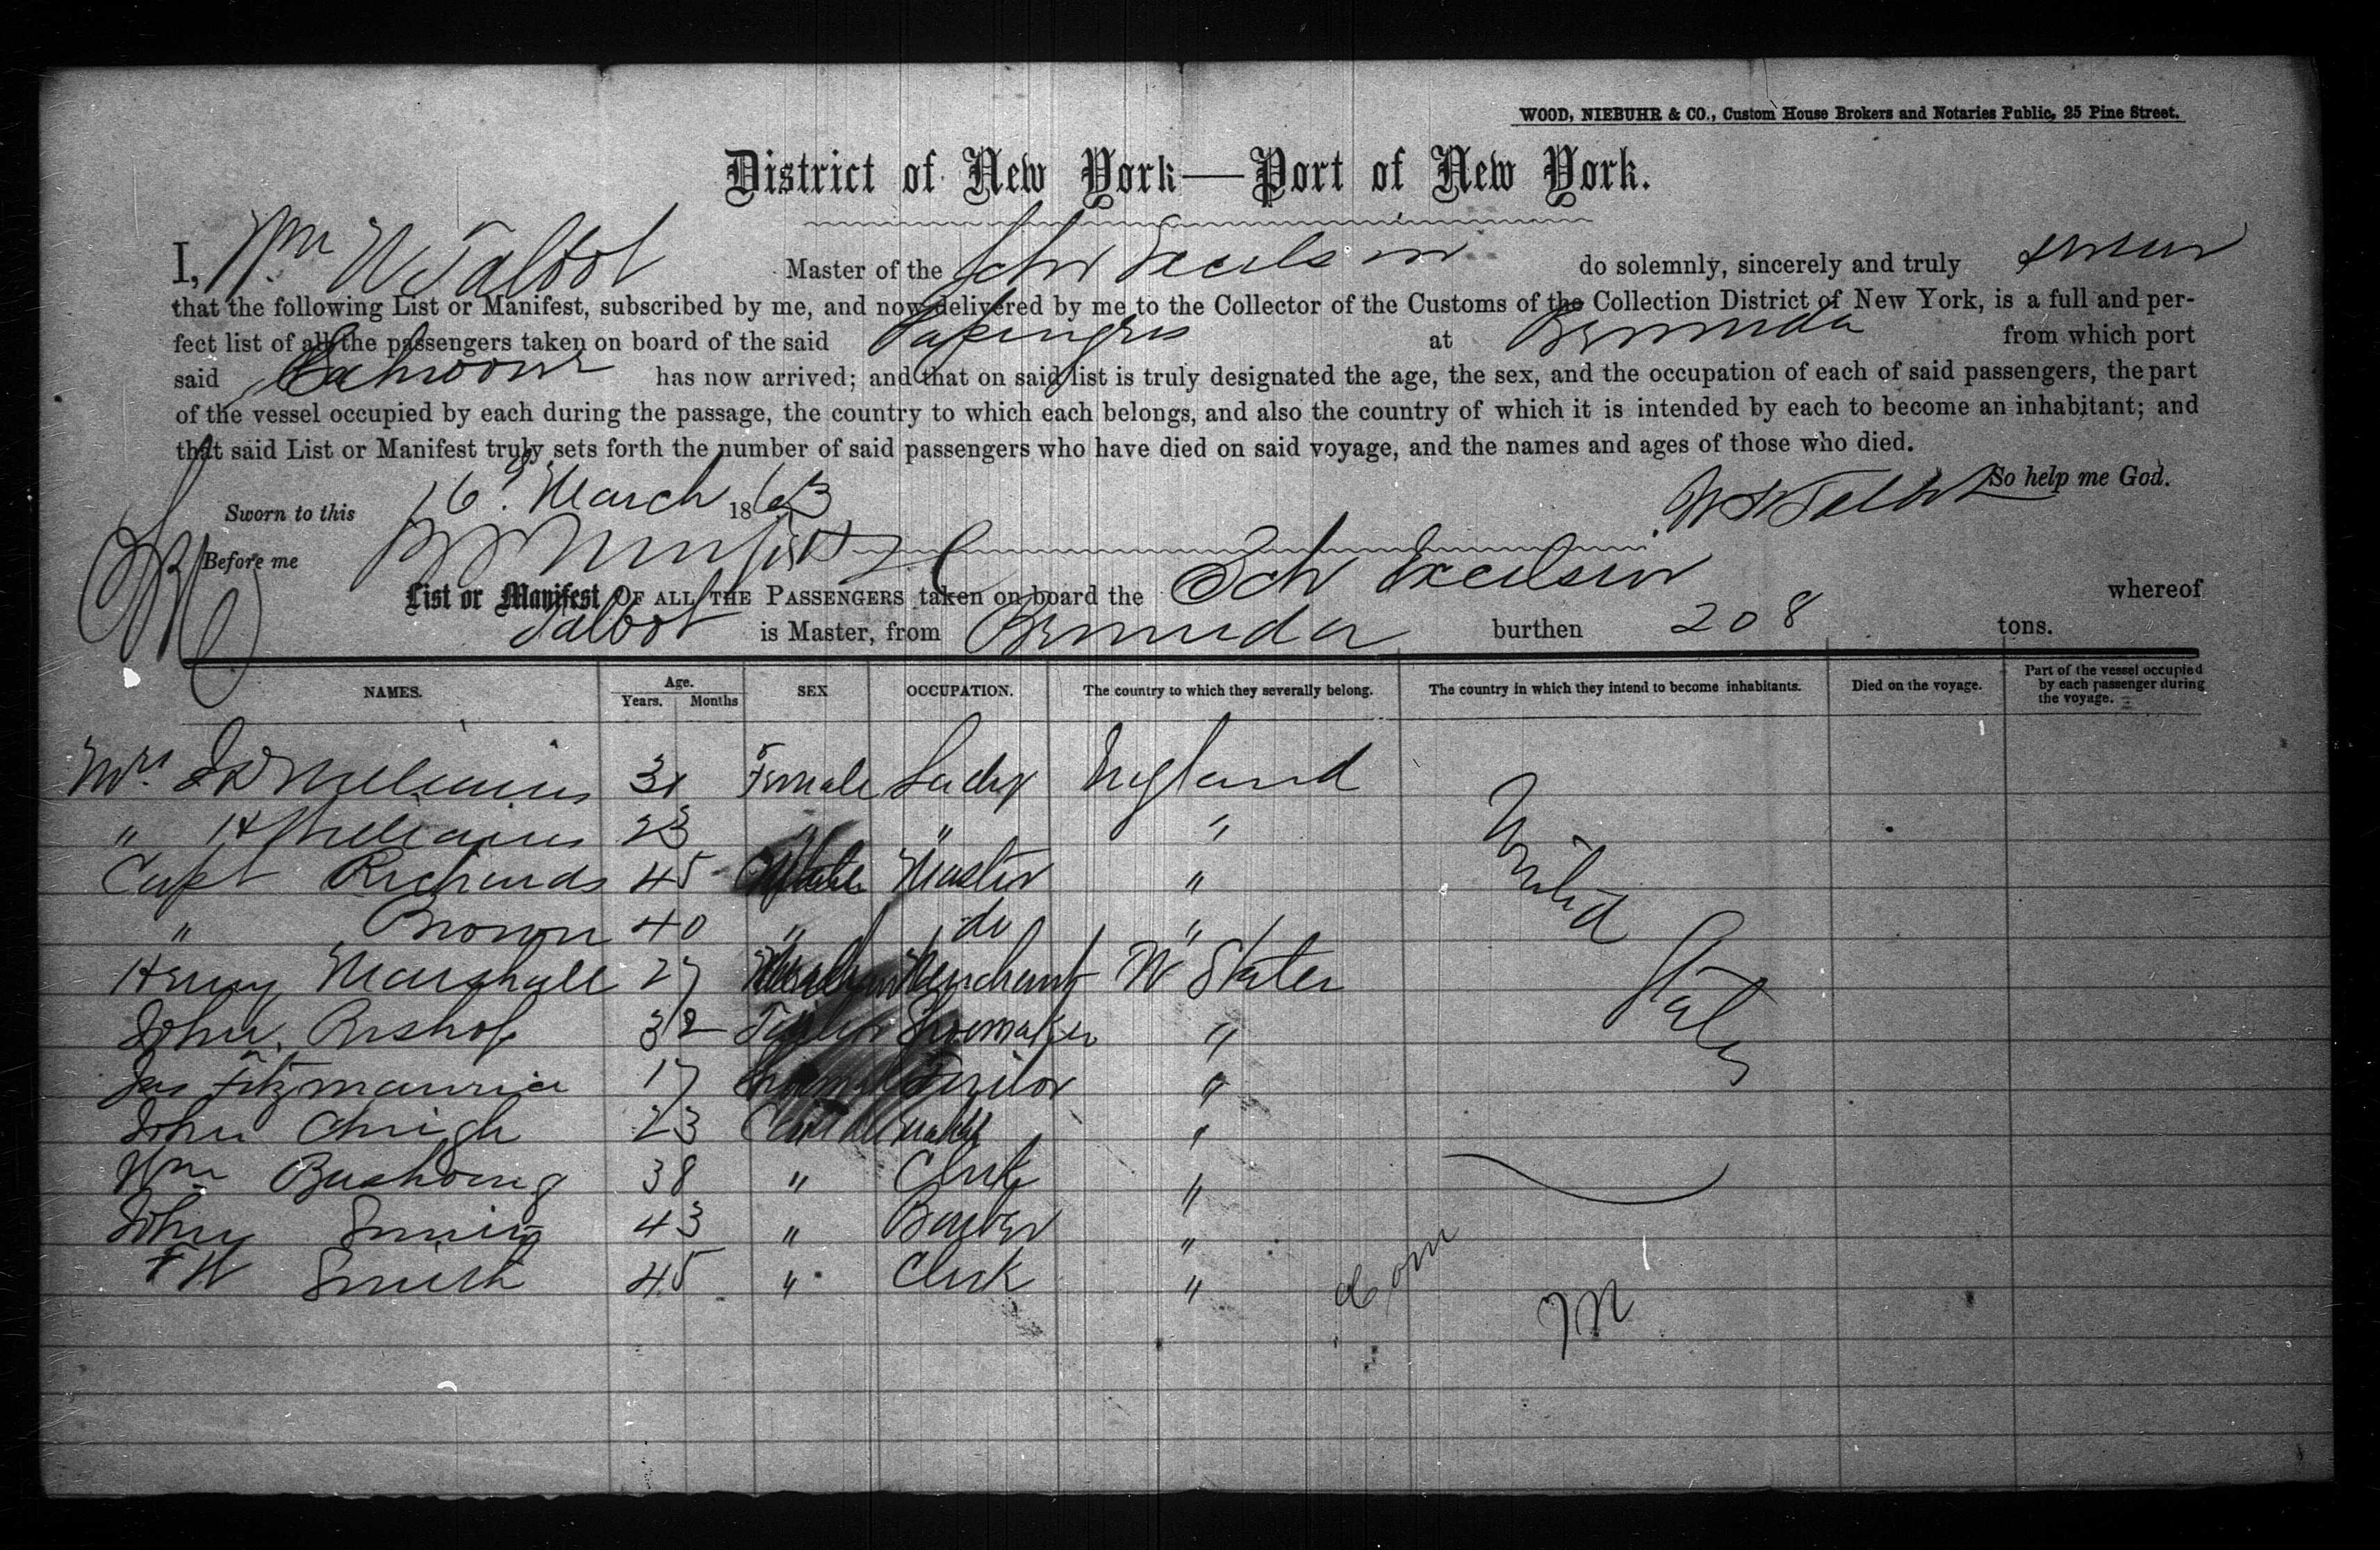 WOOD, NIEBUHR & CO., Custom House Brokers and Notaries Public, 25 Pine Street.
District of New York—Port of New York.
I, Wm W Talbot Master of the Schr Excelsior do solemnly, sincerely and truly swear
that the following List or Manifest, subscribed by me, and now delivered by me to the Collector of the Customs of the Collection District of New York, is a full and per-
fect list of all the passengers taken on board of the said at Bermuda from which port
said has now arrived; and that on said list is truly designated the age, the sex, and the occupation of each of said passengers, the part
of the vessel occupied by each during the passage, the country to which each belongs, and also the country of which it is intended by each to become an inhabitant; and
that said List or Manifest truly sets forth the number of said passengers who have died on said voyage, and the names and ages of those who died.
So help me God.
Sworn to this 16 March 1863 W W Talbot
Before me
List or Manifest OF ALL THE PASSENGERS taken on board the Schr Excelsior whereof
Talbot is Master, from Bermuda burthen 208 tons.
NAMES. Age. Years. Months SEX OCCUPATION. The country to which they severally belong. The country in which they intend to become inhabitants. Died on the voyage. Part of the vessel occupied by each passenger during the voyage.
Mrs. Williams 31 Female Lady England
" H Williams 23 " " "
Capt Richards 45 Male Master "
" Brown 40 " do "
Henry Marshall 27 Merchant U States
John Bishop 32 Shoemaker "
Jas Fitzmaurice 17 "
John 23 "
Wm Bushong 38 " Clerk "
John Smith 43 " "
F W Smith 45 " Clerk "
United States
M